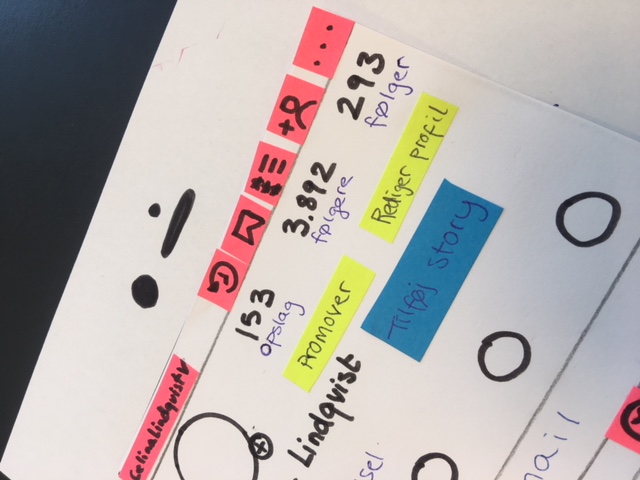 celinalindquistv
...
153
opslag
3.892
følgere
293
følger
Promover
Rediger profil
Tilføj story
Lindquist